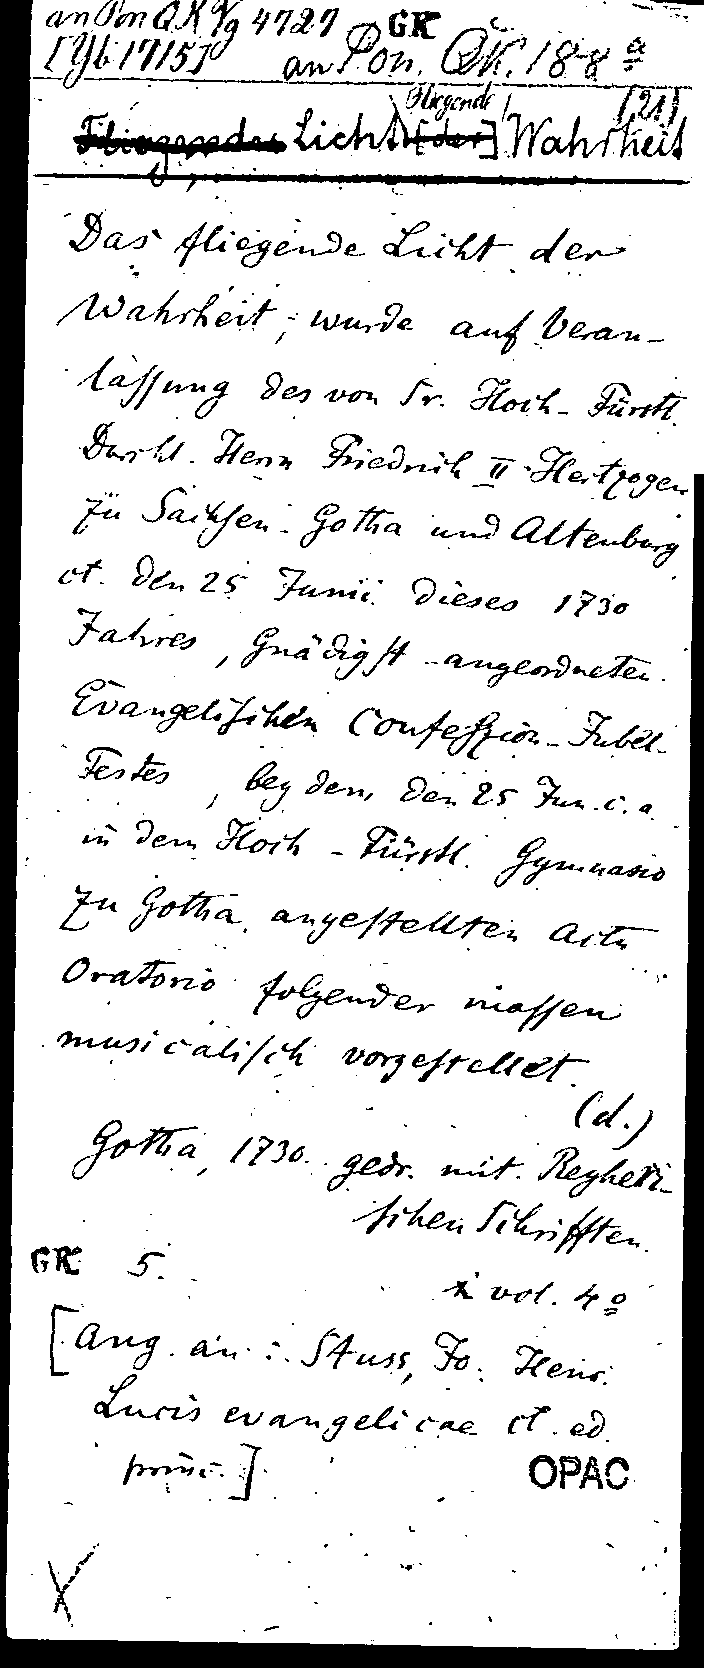 an Pon QK Yg 4727 GK
[Yb 1715] an Pon. QK. 188 a
Fliegende (21)
Fliegendes Licht [der] Wahrheit
Das fliegende Licht der
Wahrheit, wurde auf Veran-
lassung des von Sr. Hoch-Fürstl.
Durchl. Herrn Friedrich II Hertzogen
zu Sachsen-Gotha und Altenburg
ct. den 25 Junii dieses 1730
Jahres, Gnädigst-angeordneten
Evangelischen Confession-Jubel-
Festes, bey dem, den 25 Jun. c. a.
in dem Hoch-Fürstl. Gymnasio
zu Gotha angestellten Actu
Oratorio folgender massen
musicalisch vorgestellet.
(d.)
Gotha, 1730. gedr. mit. Reyheri-
schen Schrifften.
GK 5.
i vol. 4º
[ang. an: Stuss, Jo. Henr.
Lucis evangelicae ct. ed.
princ.]
OPAC
X